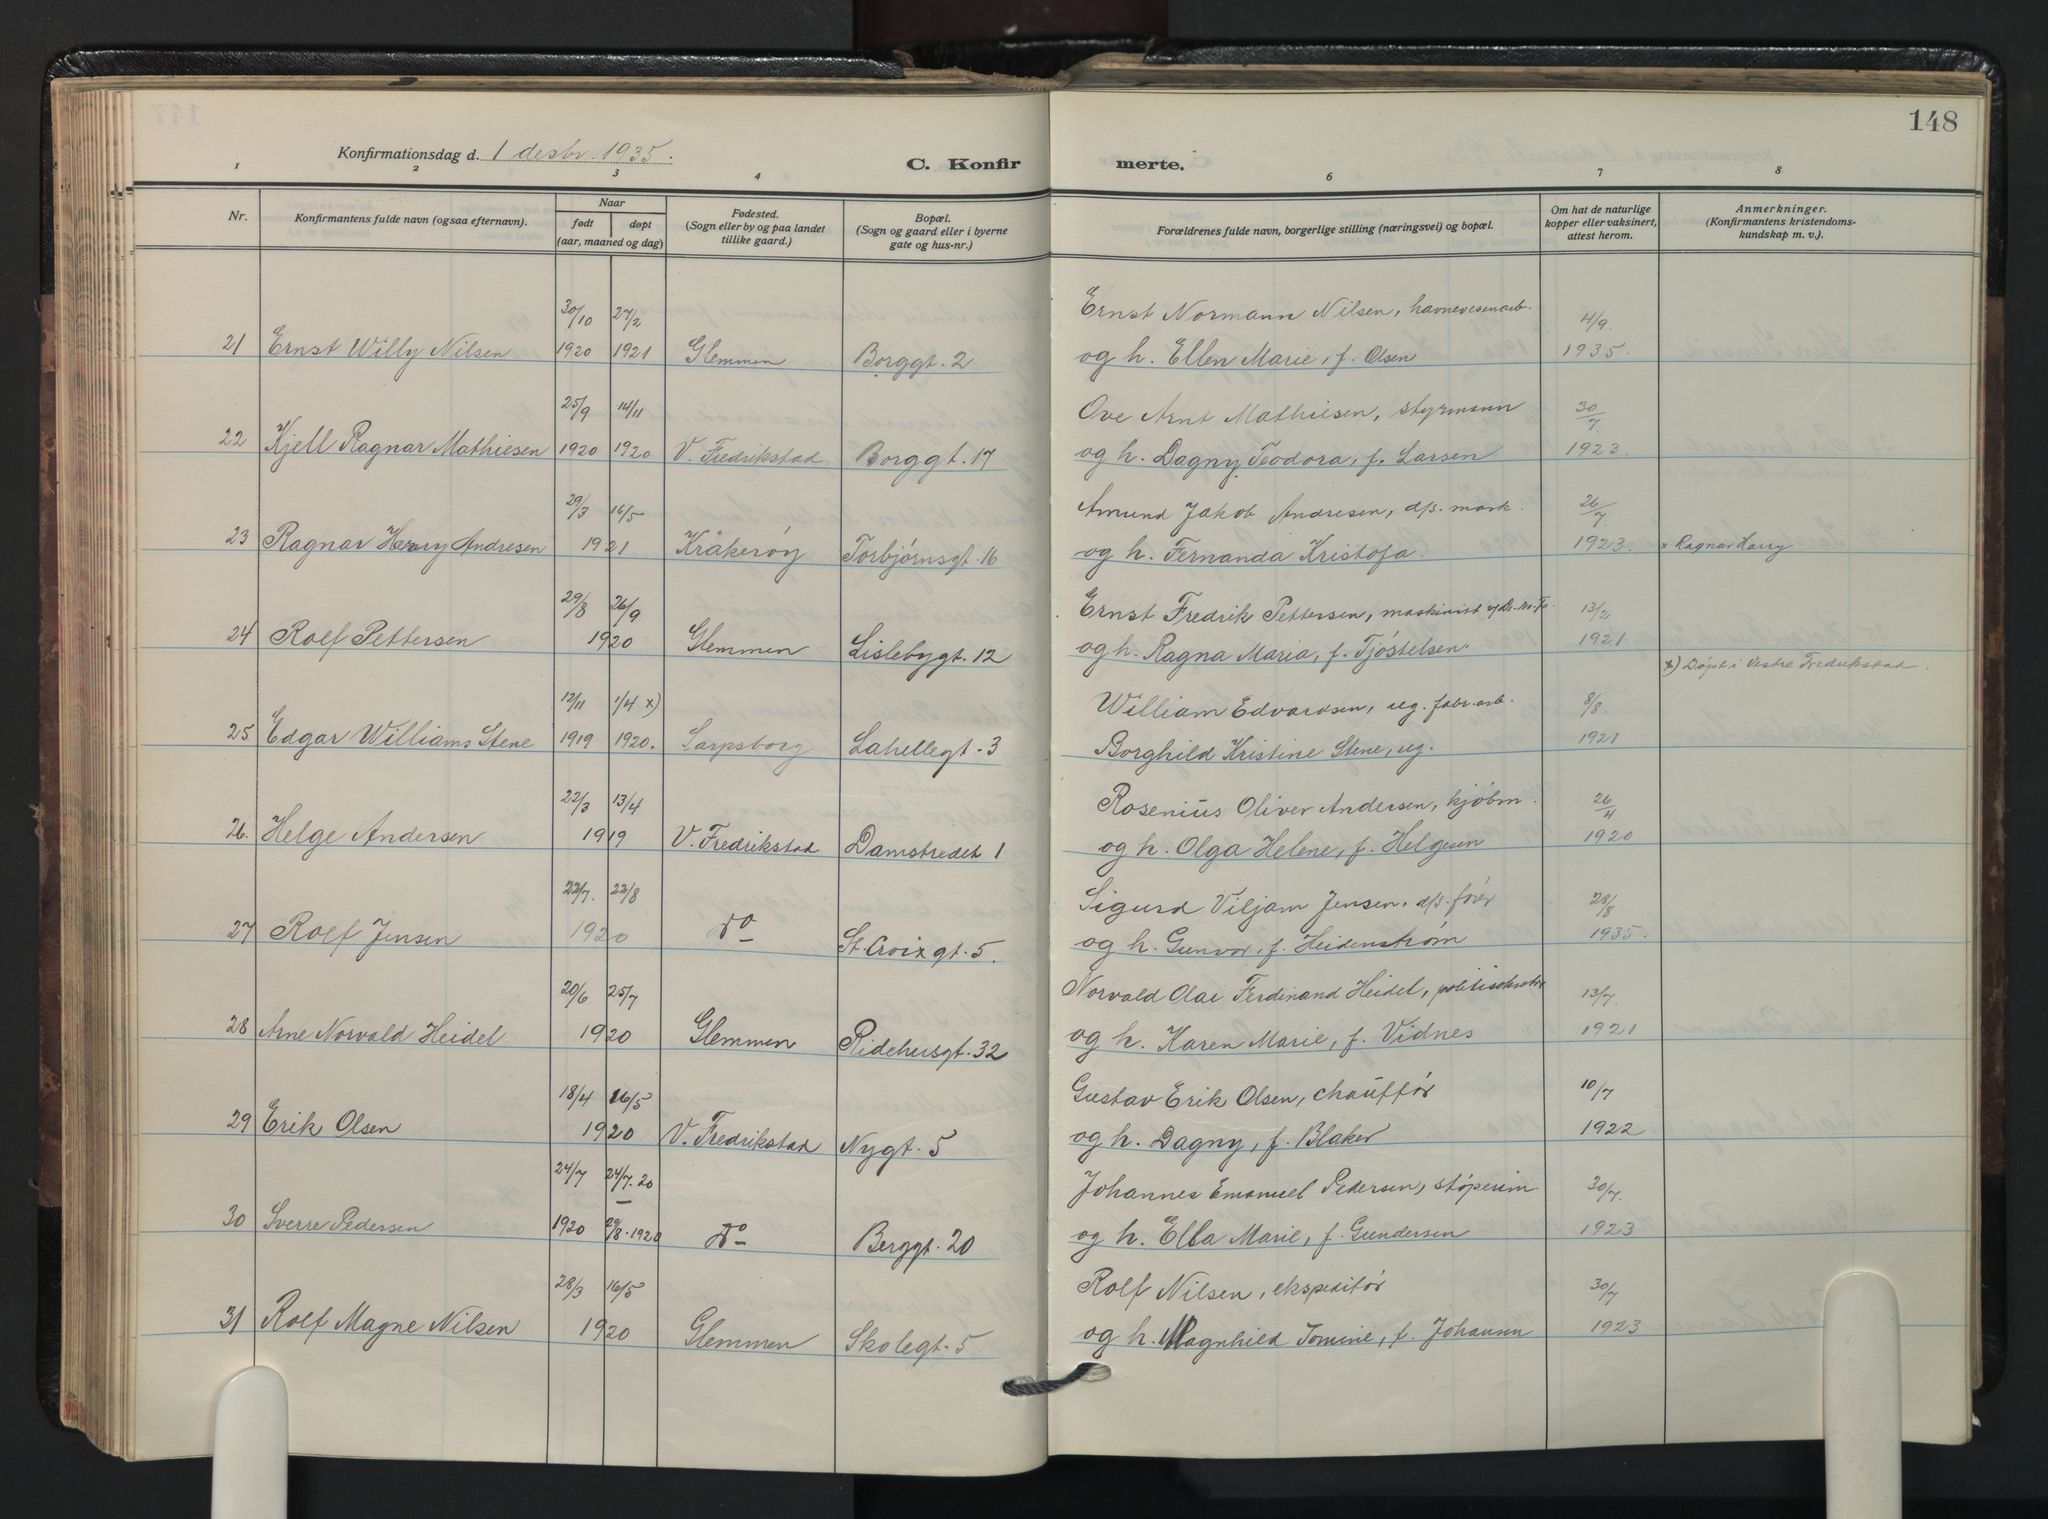 148
Konfirmationsdag d. 1 desbr. 1935.
C. Konfirmerte.
1 2 3 4 5 6 7 8
Nr.
Konfirmantens fulde navn (ogsaa efternavn).
Naar
født døpt
(aar, maaned og dag)
Fødested.
(Sogn eller by og paa landet
tillike gaard.)
Bopæl.
(Sogn og gaard eller i byerne
gate og hus-nr.)
Forældrenes fulde navn, borgerlige stilling (næringsvei) og bopæl.
Om hat de naturlige
kopper eller vaksinert,
attest herom.
Anmerkninger.
(Konfirmantens kristendoms-
kundskap m. v.).
30/10 27/2 Ernst Normann Nilsen, havnevesenarb. 4/9.
21 Ernst Willy Nilsen 1920 1921 Glemmen Borggt. 2 og h. Ellen Marie, f. Olsen 1935.
25/9 14/11 Ove Arnt Mathiesen, styrmann 30/7.
22 Kjell Ragnar Mathiesen 1920 1920 V. Fredrikstad Borggt. 17 og h. Dagny Teodora, f. Larsen 1923.
29/3 16/5 Amund Jakob Andresen, d/s. mask. 26/7.
23 Ragnar Henry Andresen 1921 Kråkerøy Torbjørnsgt. 16 og h. Fernanda Kristofa. 1923. x Ragnar Harry
29/8 26/9 Ernst Fredrik Pettersen, maskinist 13/2
24 Rolf Pettersen 1920 Glemmen Lislebygt. 12 og h. Ragna Maria, f. Tjøstelsen. 1921
x) Døpt i Vestre Fredrikstad.
12/11 1/4 x) William Edvardsen, ug. fabr. arb. 8/8.
25 Edgar Williams Stene 1919 1920. Sarpsborg Lahellegt. 3 Borghild Kristine Stene, ug. 1921
22/3 13/4 Rosenius Oliver Andersen, kjøbm. 26/4
26. Helge Andersen 1919 V. Fredrikstad Damstredet 1 og h. Olga Helene, f. Helgesen 1920
22/7. 22/8 Sigurd Viljam Jensen, d/s. fører 28/8
27 Rolf Jensen 1920 do St. Croix gt. 5. og h. Gunvor, f. Heidenstrøm 1935.
20/6 25/7 Norvald Olai Ferdinand Heidel, 13/7.
28 Arne Norvald Heidel 1920 Glemmen Ridehusgt. 32 og h. Karen Marie, f. Vidnes 1921
18/4 16/5 Gustav Erik Olsen, chauffør 10/7
29 Erik Olsen 1920 V. Fredrikstad Nygt. 5 og h. Dagny, f. Blaker 1922
24/7 24/7. 20 Johannes Emanuel Pedersen, støperim. 30/7.
30 Sverre Pedersen 1920 29/8. 1920 do Berggt. 20 og h. Ella Marie, f. Gundersen 1923
28/3 16/5 Rolf Nilsen, ekspeditør 30/7
31 Rolf Magne Nilsen 1920 Glemmen Skolegt. 5 og h. Magnhild Tomine, f. Johansen 1923